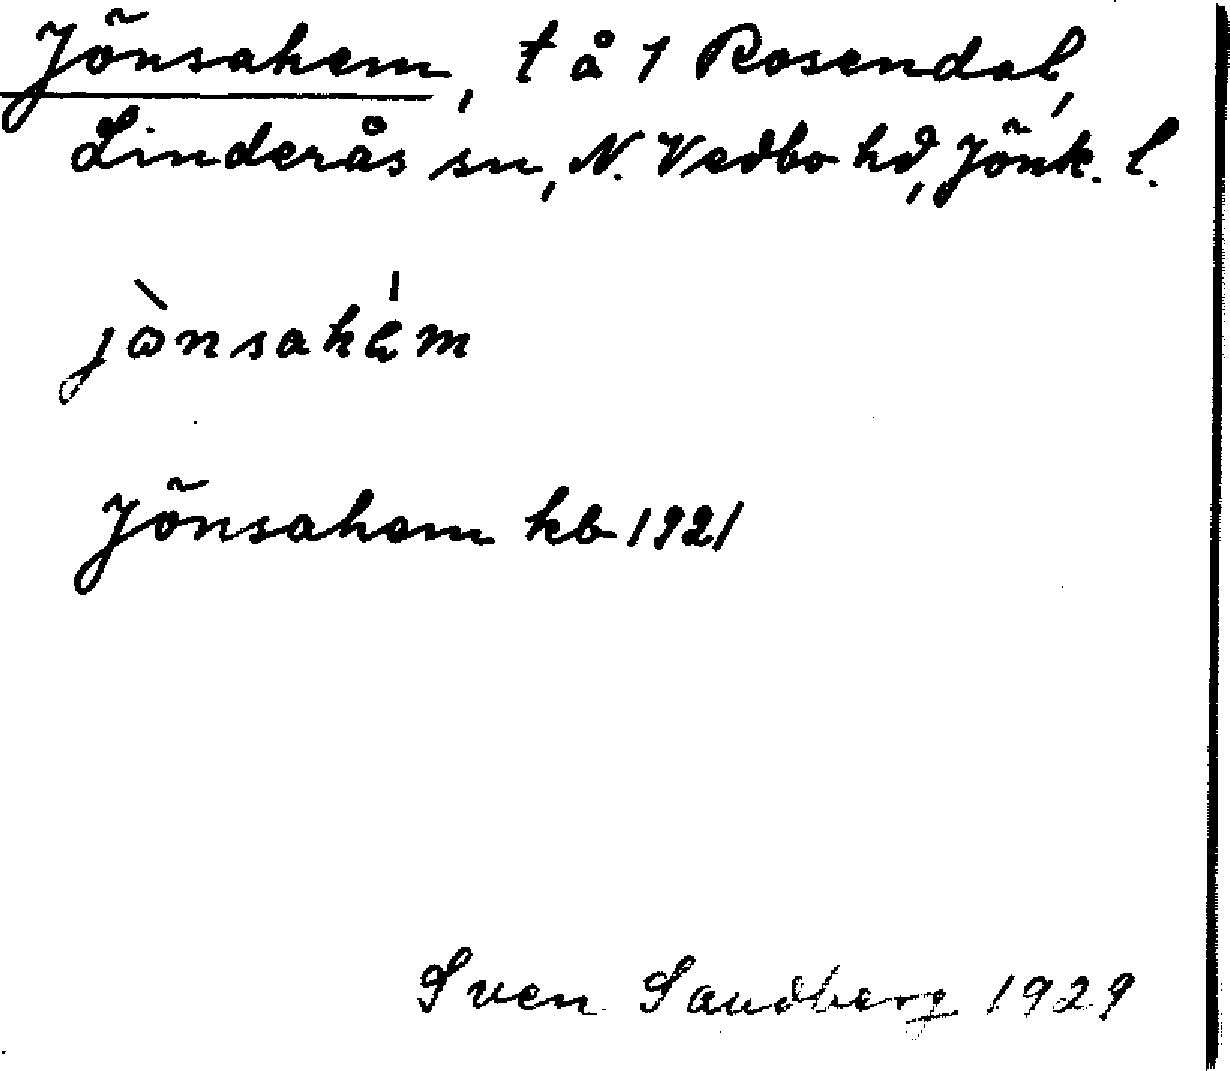 Jönsahem, t å 1 Rosendal,
Linderås sn, N. Vedbo hd, Jönk. l.
jònsahém
Jönsahem kb 1921
Sven Sandberg 1929